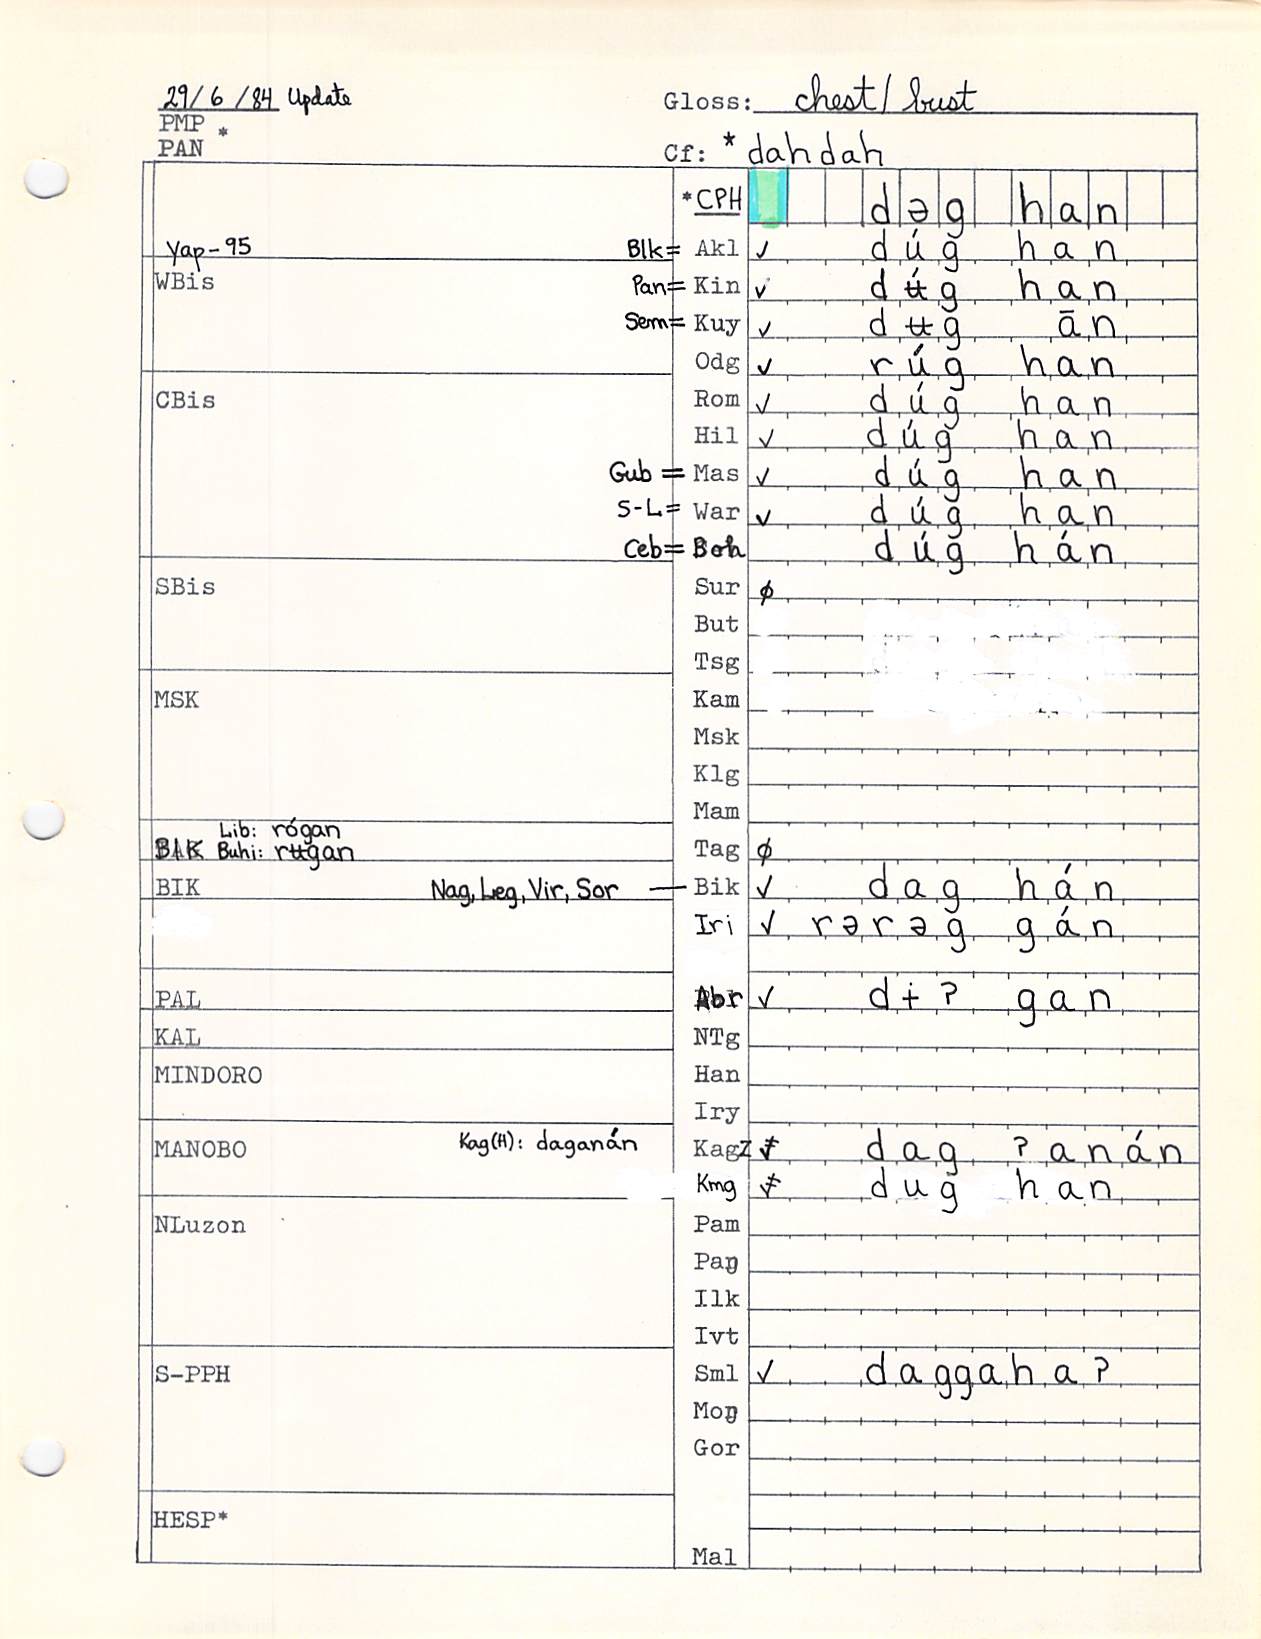 29/6/84 Update
Gloss: chest/bust
PMP *
PAN
Cf: *dahdah
*CPH dəg han
Yap-95
Blk= Akl ✓ dúg han
WBis
Pan= Kin ✓ dʉ́g han
Sem= Kuy ✓ dʉg ān
Odg ✓ rúg han
CBis
Rom ✓ dúg han
Hil ✓ dúg han
Gub = Mas ✓ dúg han
S-L= War ✓ dúg han
Ceb= Boh dúg hán
SBis
Sur ∅
But
Tsg
MSK
Kam
Msk
Klg
Mam
Lib: rógan
BAK Buhi: rʉgan
Tag ∅
BIK Nag, Leg, Vir, Sor — Bik ✓ dag hán
Iri ✓ rərəg gán
PAL Abr ✓ dɨʔ gan
KAL NTg
MINDORO Han
Iry
MANOBO Kag(H): daganán KagZ ✓ dag ʔanán
Kmg ✓ dug han
NLuzon Pam
Paŋ
Ilk
Ivt
S-PPH Sml ✓ daggahaʔ
Moŋ
Gor
HESP*
Mal